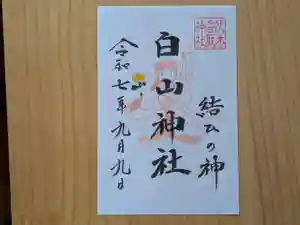 結ひの神
白山神社
令和七年九月九日